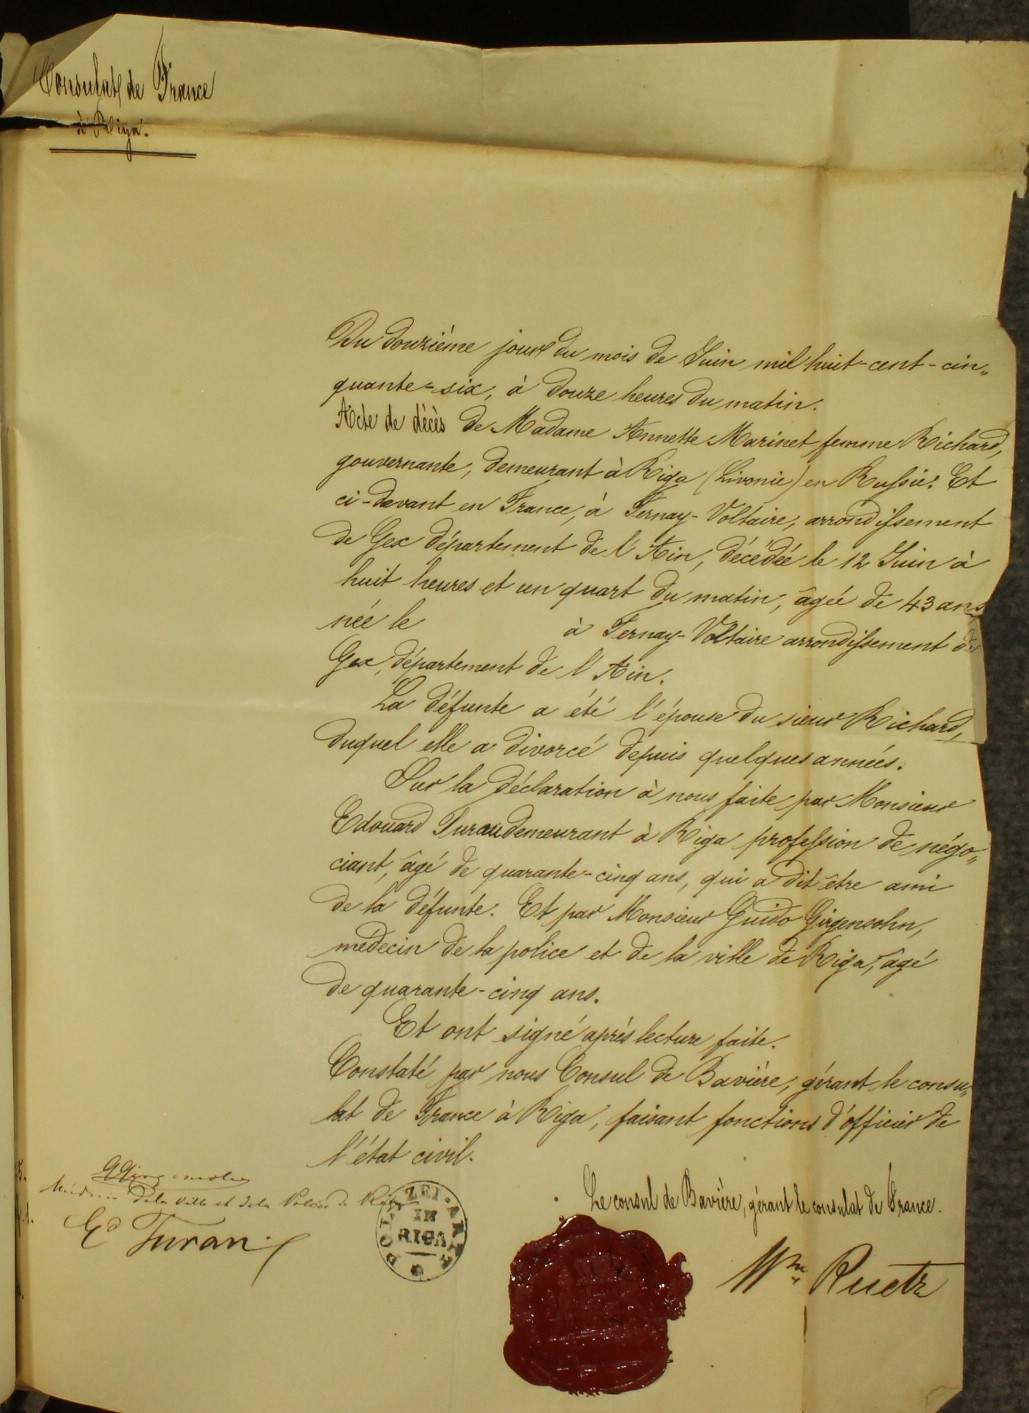 Consulat de France
à Riga.
Du douzième jour du mois de Juin mil huit-cent-cin„
quante-six, à douze heures du matin.
Acte de décès de Madame Annette Marinet femme Richard,
gouvernante, demeurant à Riga (Livonie) en Russie. Et
ci-devant en France, à Fernay-Voltaire, arrondissement
de Gex département de l'Ain, décédée le 12 Juin à
huit heures et un quart du matin, âgée de 43 ans
née le à Fernay-Voltaire arrondissement de
Gex, département de l'Ain.
La défunte a été l'épouse du sieur Richard,
duquel elle a divorcé depuis quelques années.
Sur la déclaration à nous faite par Monsieur
Edouard Turau demeurant à Riga profession de négo„
ciant, âgé de quarante-cinq ans, qui a dit être ami
de la défunte. Et par Monsieur Guido Girgensohn,
médecin de la police et de la ville de Riga, âgé
de quarante-cinq ans.
Et ont signé après lecture faite.
Constaté par nous Consul de Bavière, gérant le consu„
lat de France à Riga, faisant fonctions d'officier de
l'état civil.
Le consul de Bavière, gérant le consulat de France.
Wm Ruetz
GGirgensohn
Médecin de la ville et de la Police de Riga
Ed Turau
POLIZEI-AMT
IN
RIGA